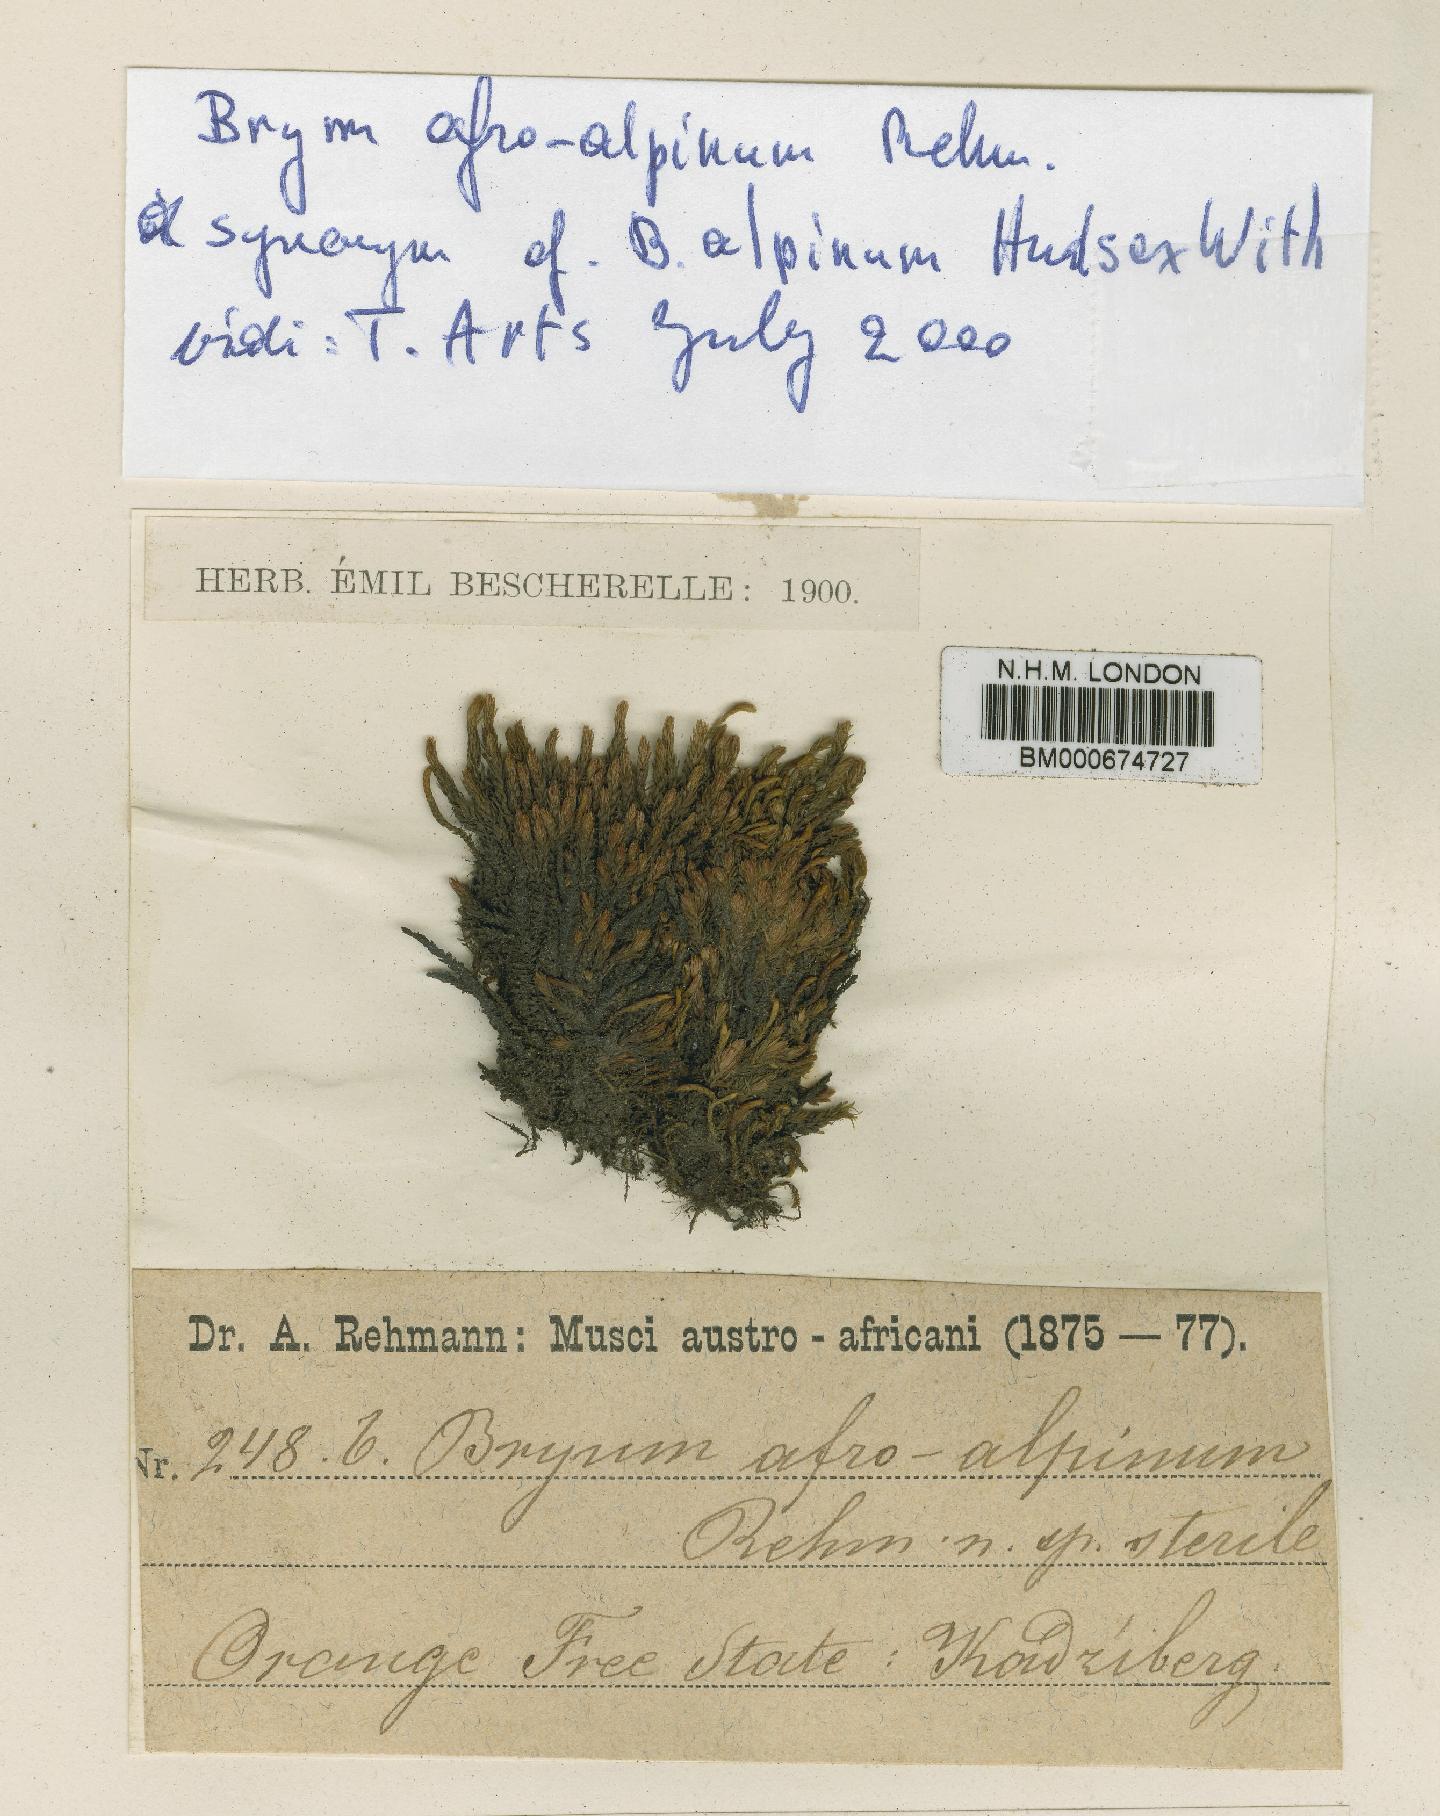 Brym afro-alpinum Rehm.
a synonym of. B. alpinum Huds ex With
vidi: T. Arts July 2000
HERB. ÉMIL BESCHERELLE: 1900.
N.H.M. LONDON
BM000674727
Dr. A. Rehmann: Musci austro-africani (1875 — 77).
Nr. 248. b. Bryum afro-alpinum
Rehm. n. sp. sterile
Orange Free State: Kadziberg.